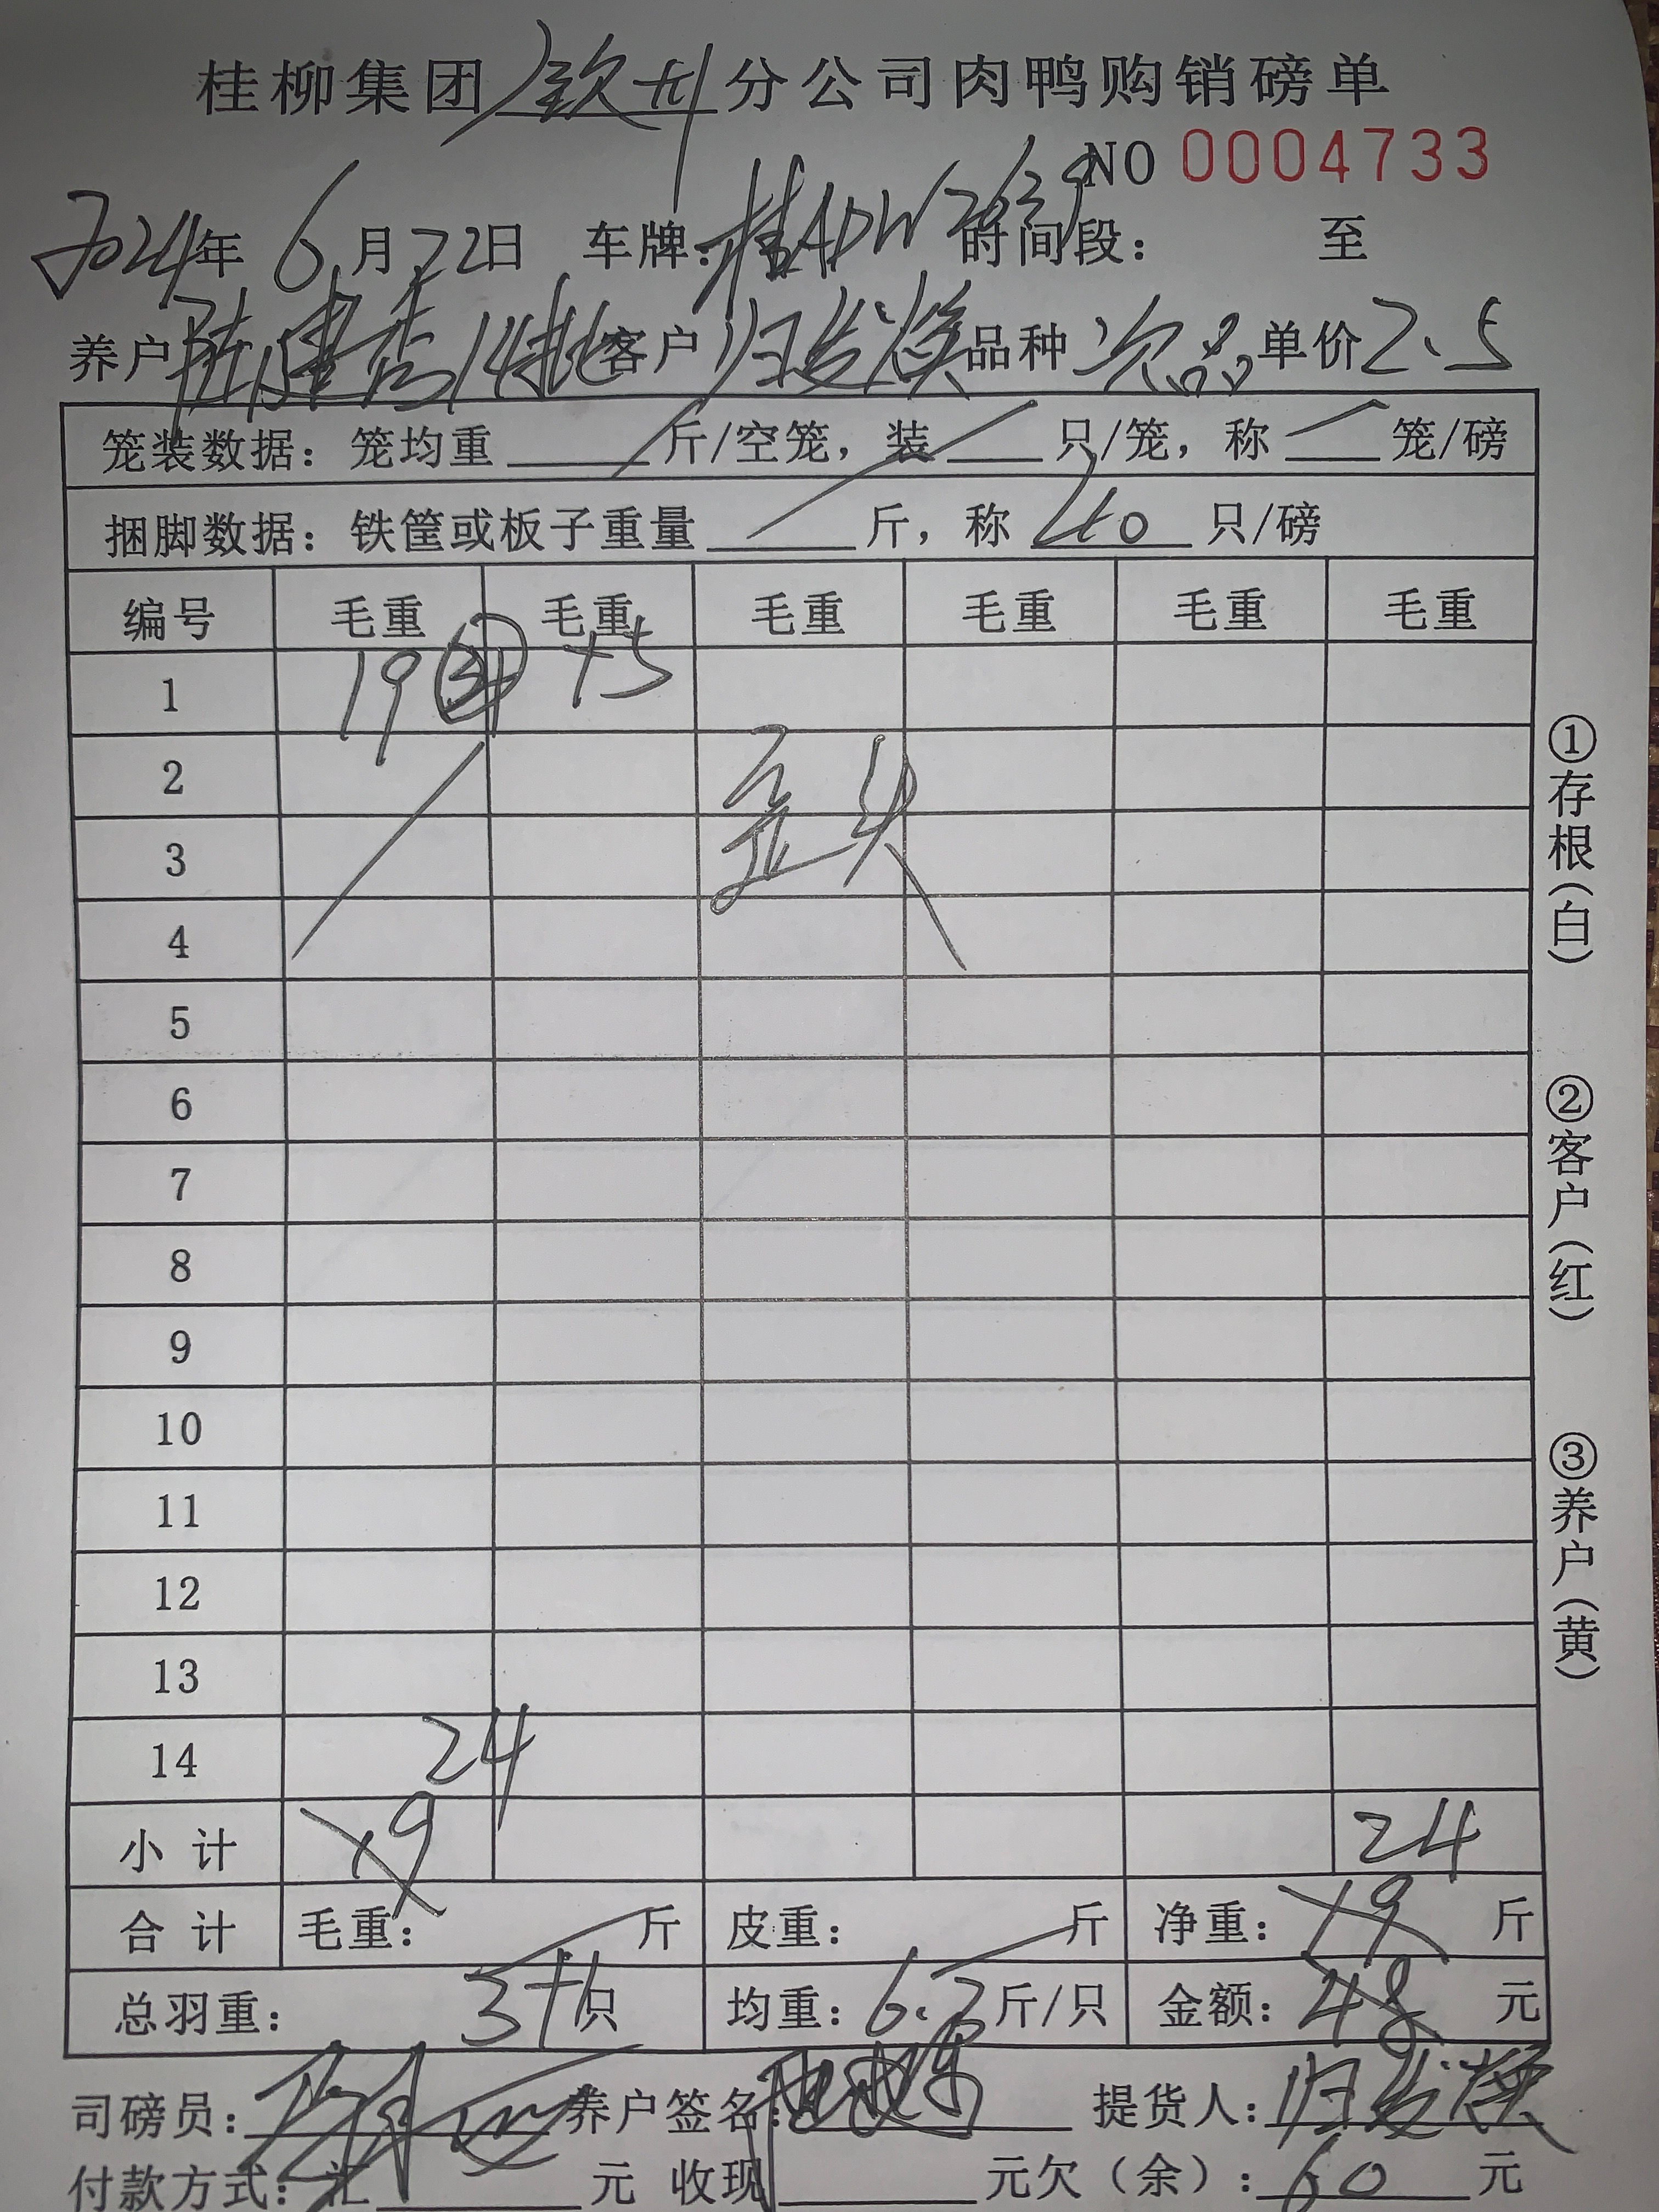 桂柳集团钦州分公司肉鸭购销磅单
NO 0004733
2024年6月22日 车牌：桂ADW2639 时间段： 至
养户陆建杏14批客户归发焕品种次品单价2.5
笼装数据：笼均重 斤/空笼，装 只/笼，称 笼/磅
捆脚数据：铁筐或板子重量 斤，称 40 只/磅
编号 毛重 毛重 毛重 毛重 毛重 毛重
1 19 +5
2 歪头
3
4
5
6
7
8
9
10
11
12
13
14 24
小计 19 24
合计 毛重： 斤 皮重： 斤 净重：19 斤
总羽重：3+1只 均重：6.3斤/只 金额：48 元
司磅员： 养户签名： 提货人：归发焕
付款方式：汇 元 收现 元欠（余）：60 元
①存根（白）
②客户（红）
③养户（黄）